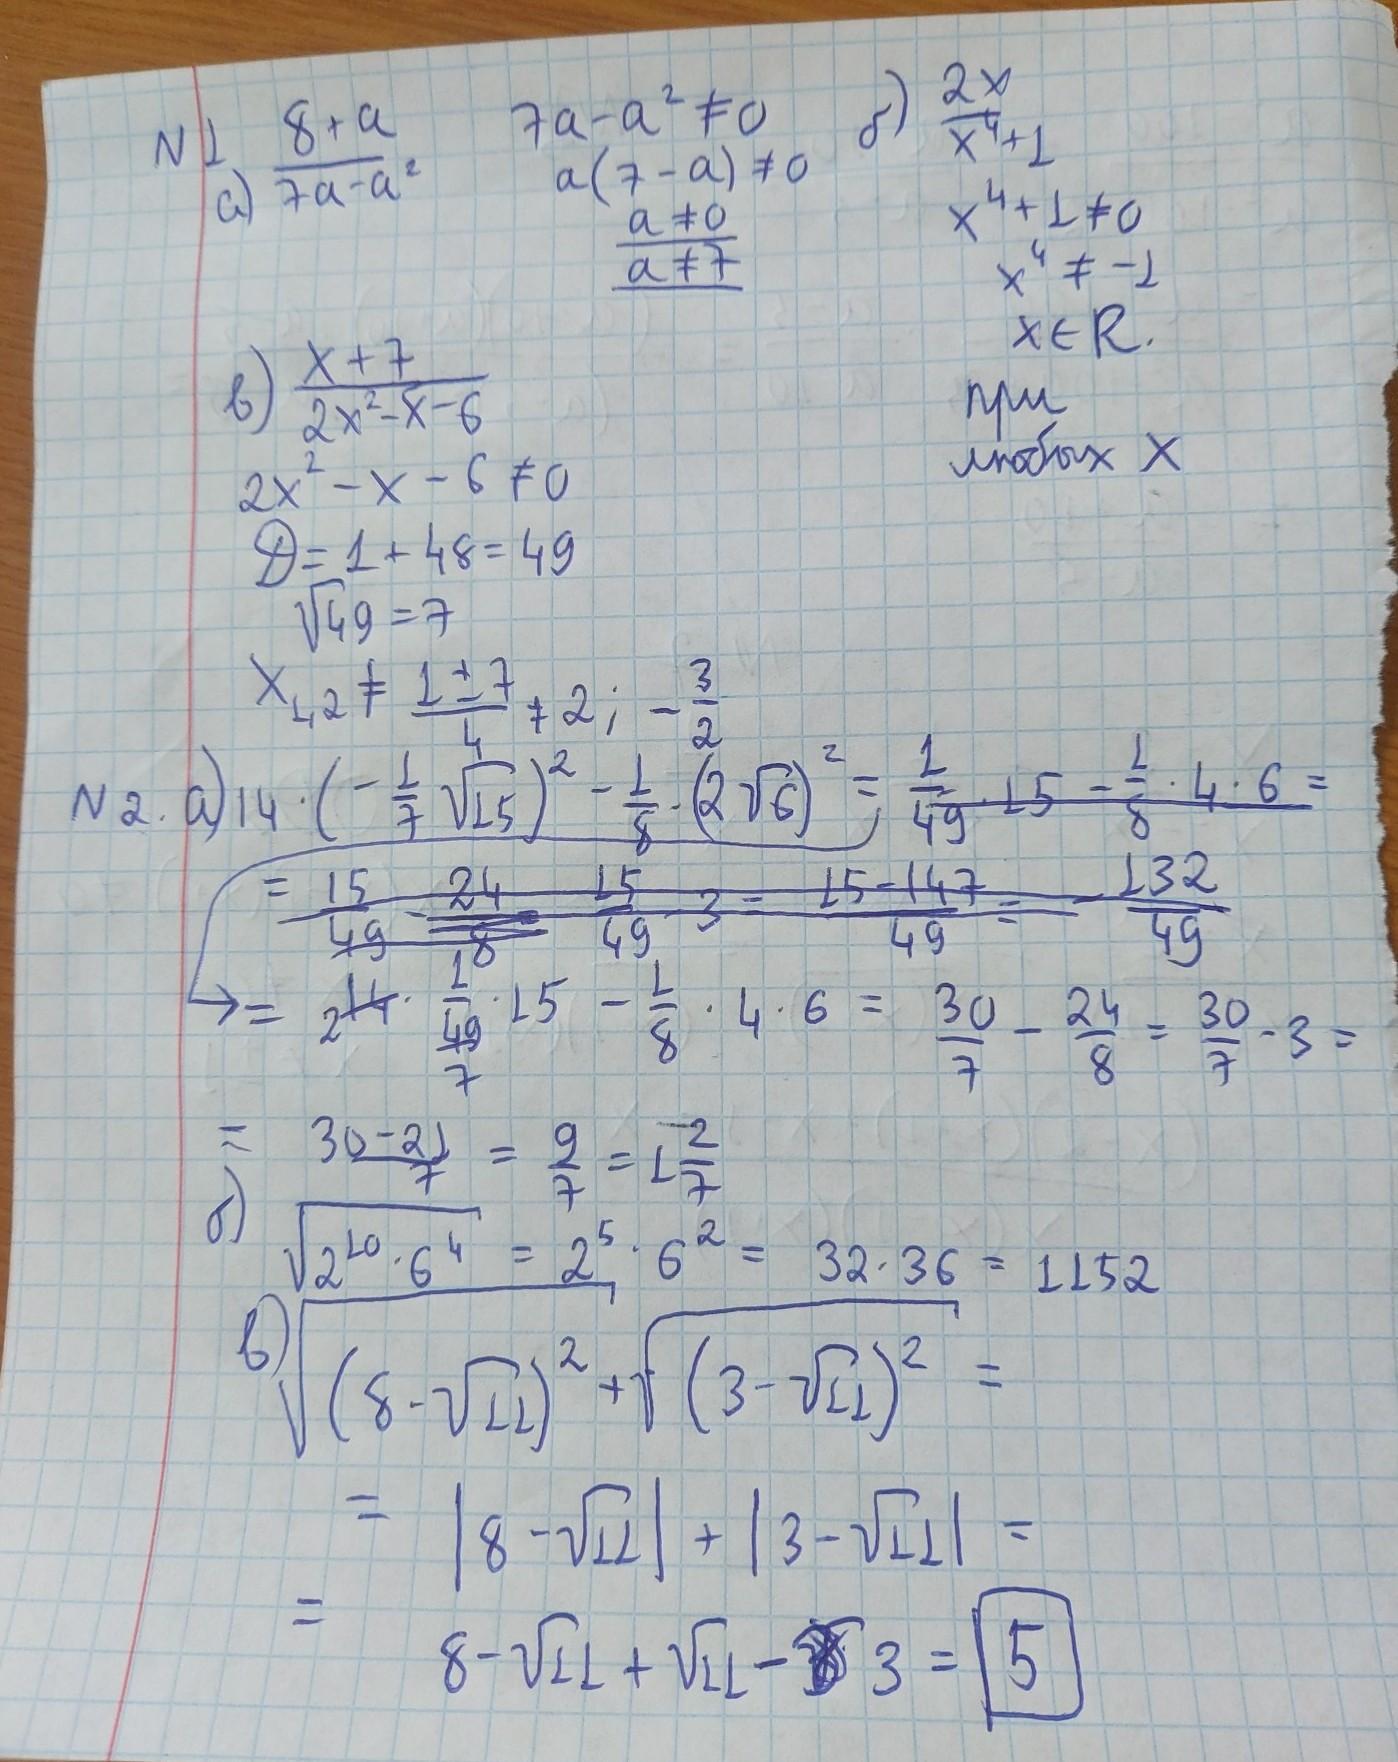 N1
а) (8+a)/(7a-a²)
7a-a² ≠0
a(7-a) ≠0
a≠0
a≠7
б) 2x/(x⁴+1)
x⁴+1≠0
x⁴ ≠ -1
x∈R.
при
любых x
в) (x+7)/(2x²-x-6)
2x² - x - 6 ≠0
D=1+48=49
√49 = 7
x₁,₂ ≠ (1±7)/4 ≠ 2; -3/2
N2. а) 14·(-1/7 √15)² - 1/8·(2√6)² = 1/49·15 - 1/8·4·6 =
= 15/49 - 24/8 = 15/49 - 3 = (15-147)/49 = -132/49
= 2 14·1/49 7·15 - 1/8·4·6 = 30/7 - 24/8 = 30/7 - 3 =
= (30-21)/7 = 9/7 = 1 2/7
б) √(2¹⁰·6⁴) = 2⁵·6² = 32·36 = 1152
в) √((8-√11)²) + √((3-√11)²) =
= |8-√11| + |3-√11| =
= 8-√11+√11- 3 = 5